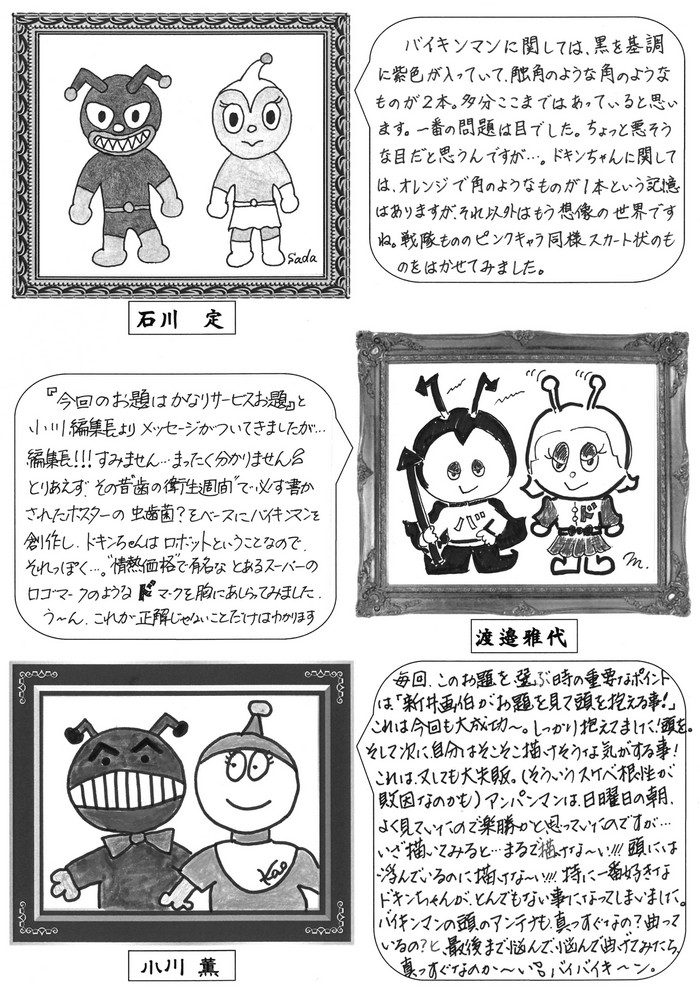 バイキンマンに関しては、黒を基調
に紫色が入っていて、触角のような角のような
ものが2本。多分ここまではあっていると思い
ます。一番の問題は目でした。ちょっと悪そう
な目だと思うんですが…。ドキンちゃんに関して
は、オレンジで角のようなものが1本という記憶
はありますが、それ以外はもう想像の世界です
ね。戦隊もののピンクキャラ同様スカート状のも
のをはかせてみました。
Sada
石川 定
『今回のお題はかなりサービスお題』と
小川編集長よりメッセージがついてきましたが…
編集長!!!すみません…まったく分かりません
とりあえず、その昔“歯の衛生週間”で必ず書か
されたポスターの虫歯菌?をベースにバイキンマンを
創作し、ドキンちゃんはロボットということなので、
それっぽく…。“情熱価格”で有名なとあるスーパーの
ロゴマークのようなドマークを胸にあしらってみました。
う〜ん、これが正解じゃないことだけはわかります
バ
ド
m.
渡邉雅代
毎回、このお題を選ぶ時の重要なポイント
は「新井画伯がお題を見て頭を抱える事!」
これは今回も大成功〜。しっかり抱えてました!頭を。
そして次に、自分はそこそこ描けそうな気がする事!
これは、又しても大失敗。(そういうスケベ根性が
敗因なのかも)アンパンマンは、日曜日の朝、
よく見ていたので楽勝かと思っていたのですが…
いざ描いてみると…まるで描けな〜い!!!頭には
浮んでいるのに描けな〜い!!!特に一番好きな
ドキンちゃんが、とんでもない事になってしまいました。
バイキンマンの頭のアンテナも、真っすぐなの?曲って
いるの?と、最後まで悩んで、悩んで曲げてみたら、
真っすぐなのか〜い バイバイキ〜ン。
Kao
小川 薫